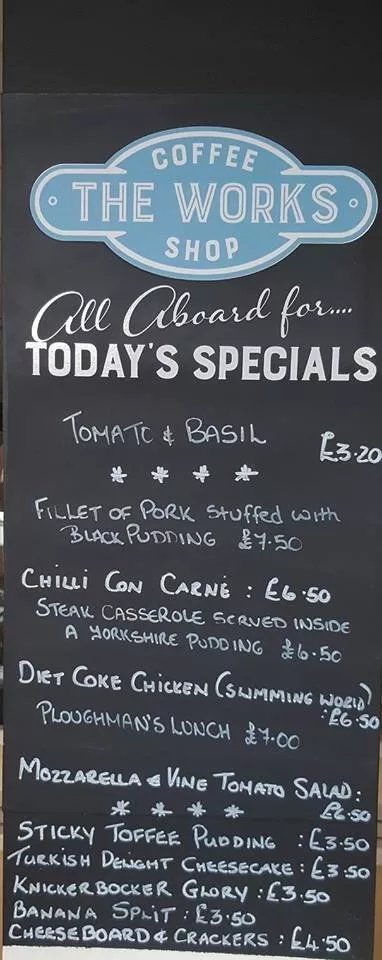 COFFEE
THE WORKS
SHOP
All Aboard for....
TODAY'S SPECIALS
TOMATO & BASIL £3.20
* * * *
FILLET OF PORK Stuffed with
BLACK PUDDING £7.50
CHILLI CON CARNE : £6.50
STEAK CASSEROLE SERVED INSIDE
A YORKSHIRE PUDDING £6.50
DIET COKE CHICKEN (SLIMMING WORLD)
: £6.50
PLOUGHMAN'S LUNCH £7.00
MOZZARELLA & VINE TOMATO SALAD :
£6.50
* * * *
STICKY TOFFEE PUDDING : £3.50
TURKISH DELIGHT CHEESECAKE : £3.50
KNICKERBOCKER GLORY : £3.50
BANANA SPLIT : £3.50
CHEESEBOARD & CRACKERS : £4.50